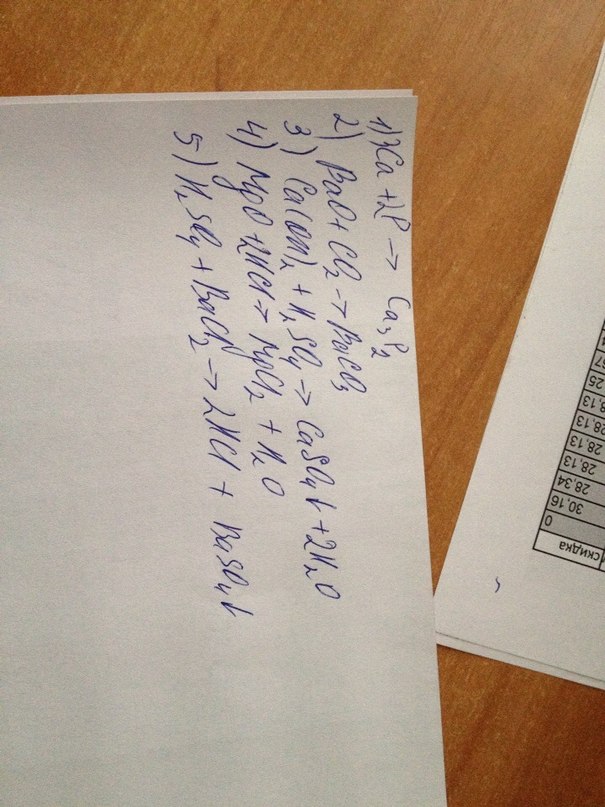 1) 3Ca + 2P → Ca₃P₂
2) BaO + CO₂ → BaCO₃
3) Ca(OH)₂ + H₂SO₄ → CaSO₄↓ + 2H₂O
4) MgO + 2HCl → MgCl₂ + H₂O
5) H₂SO₄ + BaCl₂ → 2HCl + BaSO₄↓
скидка
0
30,16
28,34
28,13
28,13
28,13
28,13